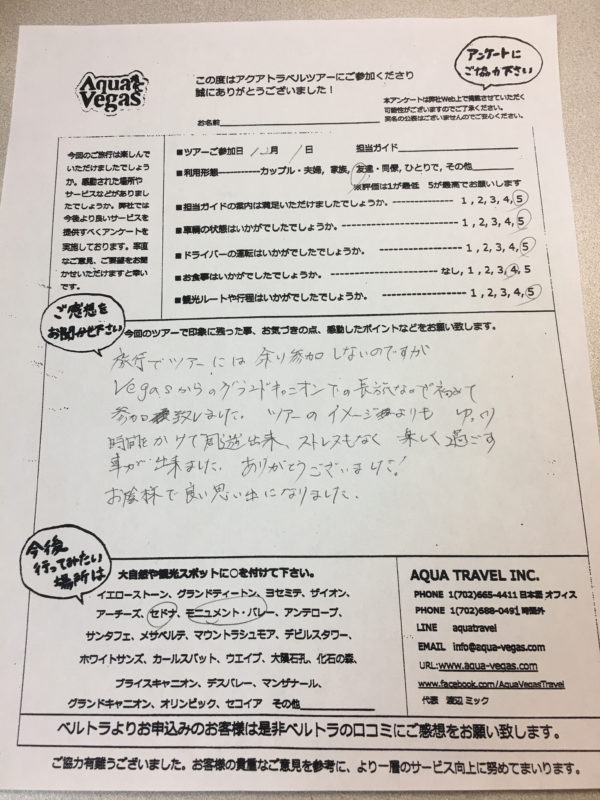 Aqua Vegas
この度はアクアトラベルツアーにご参加くださり
誠にありがとうございました！
アンケートに
ご協力下さい
本アンケートは弊社Web上で掲載させていただく
可能性がございますのでご了承ください。
実名の公表はございませんのでご安心ください。
お名前
今回のご旅行は楽しんで
いただけましたでしょう
か。感動された場所や
サービスなどがありまし
たでしょうか。弊社では
今後より良いサービスを
提供すべくアンケートを
実施しております。率直
なご意見、ご要望をお聞
かせいただけますと幸い
です。
■ツアーご参加日 月 日 担当ガイド
■利用形態------------カップル・夫婦, 家族, 友達・同僚, ひとりで, その他
※評価は1が最低 5が最高でお願いします
■担当ガイドの案内は満足いただけましたでしょうか。 1, 2, 3, 4, 5
■車輌の状態はいかがでしたでしょうか。 1, 2, 3, 4, 5
■ドライバーの運転はいかがでしたでしょうか。 1, 2, 3, 4, 5
■お食事はいかがでしたでしょうか。 なし, 1, 2, 3, 4, 5
■観光ルートや行程はいかがでしたでしょうか。 1, 2, 3, 4, 5
ご感想を
お聞かせ下さい
今回のツアーで印象に残った事、お気づきの点、感動したポイントなどをお願い致します。
旅行でツアーには余り参加しないのですが
Vegasからのグランドキャニオンまでの長旅なので初めて
参加致しました。ツアーのイメージよりも ゆっくり
時間をかけて 出来、ストレスもなく 楽しく過ごす
事が出来ました。ありがとうございました！
お陰様で良い思い出になりました。
今後
行ってみたい
場所は
大自然や観光スポットに○を付けて下さい。
イエローストーン、グランドティートン、ヨセミテ、ザイオン、
アーチーズ、セドナ、モニュメント・バレー、アンテロープ、
サンタフェ、メサベルデ、マウントラシュモア、デビルスタワー、
ホワイトサンズ、カールスバット、ウエイブ、大隕石孔、化石の森、
ブライスキャニオン、デスバレー、マンザナール、
グランドキャニオン、オリンピック、セコイア その他
AQUA TRAVEL INC.
PHONE 1(702)665-4411 日本語 オフィス
PHONE 1(702)688-0491 時間外
LINE aquatravel
EMAIL info@aqua-vegas.com
URL:www.aqua-vegas.com
www.facebook.com/AquaVegasTravel
代表 渡辺 ミック
ベルトラよりお申込みのお客様は是非ベルトラの口コミにご感想をお願い致します。
ご協力有難うございました。お客様の貴重なご意見を参考に、より一層のサービス向上に努めてまいります。